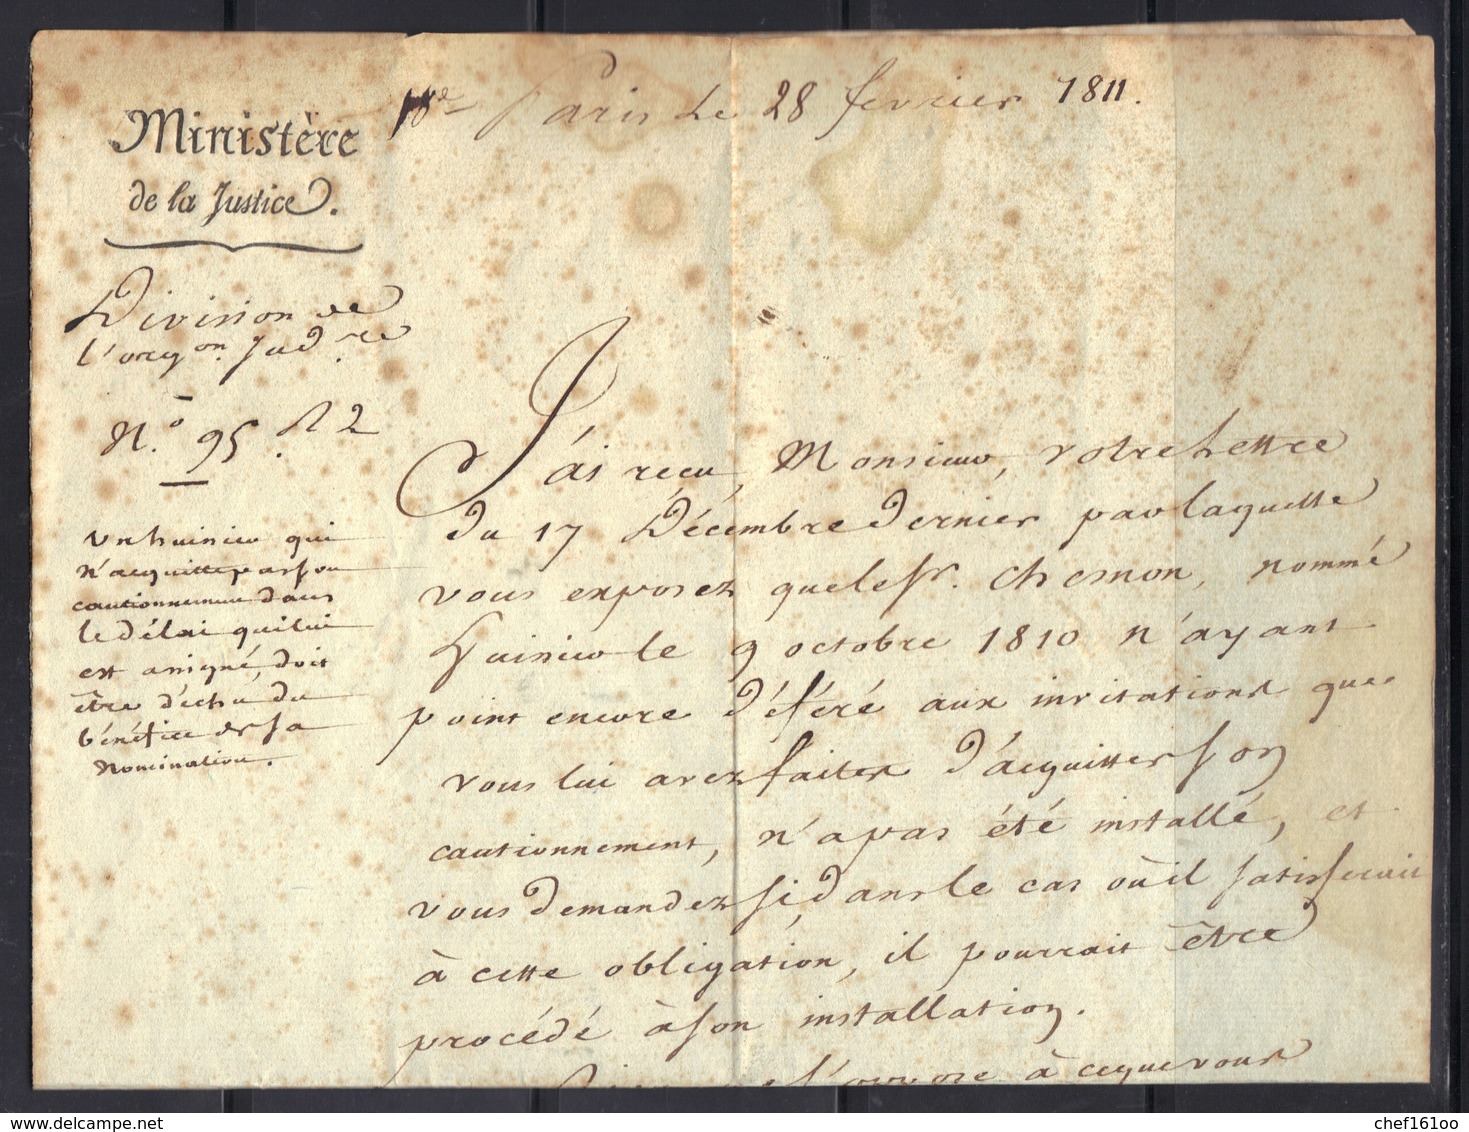 Paris Le 28 fevrier 1811.
Ministère
de la Justice.
Division de
l'orgon. Judre
N.o 95. R 2
un huissier qui
n'acquitte pas son
cautionnement dans
le délai qui lui
est assigné, doit
être déchu du
bénéfice de sa
nomination.
J'ai reçu, Monsieur, votre Lettre
du 17 Décembre dernier par laquelle
vous exposez que le Sr. Chemon, nommé
huissier le 9 octobre 1810 n'ayant
point encore déféré aux invitations que
vous lui avez faites d'acquitter son
cautionnement, n'a pas été installé, et
vous demandez si, dans le cas où il satisferait
à cette obligation, il pourrait être
procédé à son installation.
à ce que vous
chef16100